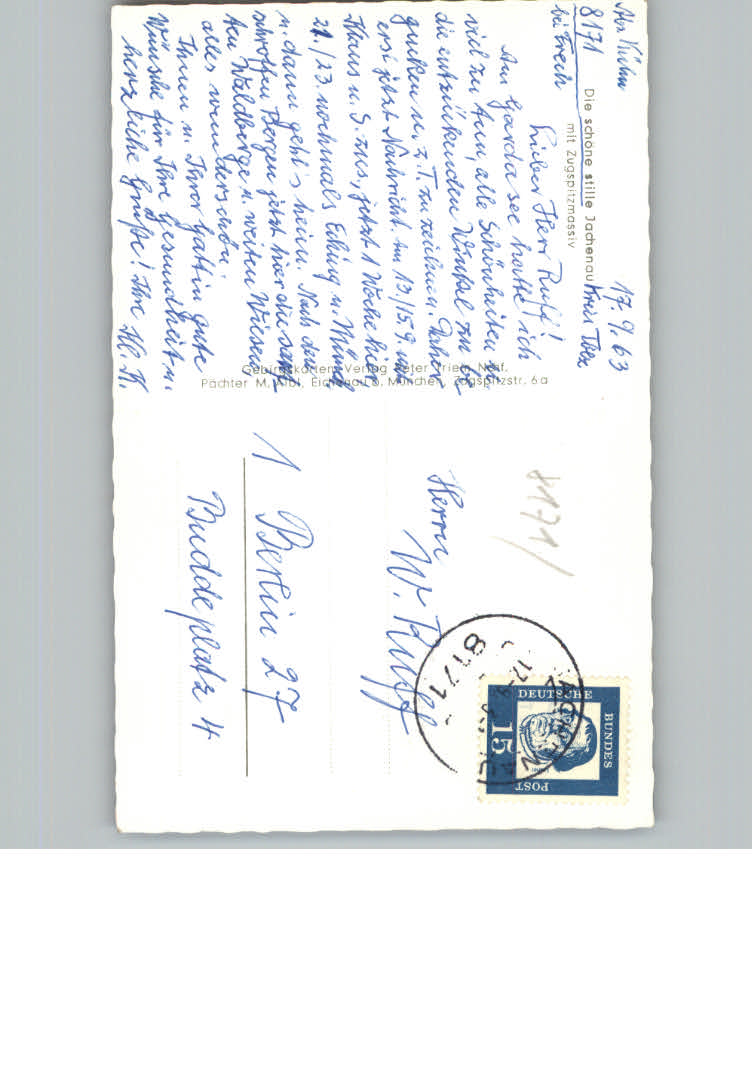 Abs. Kühn
8171
bei Frech
17.9.63
Kreis Tölz
Die schöne stille Jachenau
mit Zugspitzmassiv
Lieber Herr Ruff!
Am Gardasee hatte ich
viel zu tun, alle Schönheiten u.
die entzückenden Winkel zu
gucken u. z. T. zu zeichnen. Daher
erst jetzt Nachricht. Am 13./15.9. mit
Klaus u. S. zus., jetzt 1 Woche hier
21./23. nochmals Eibing u. Münch
u. dann geht's heim. Nach den
schroffen Bergen jetzt hier die sanf-
ten Waldberge u. weiten Wiesen
alles wunderschön.
Ihnen u. Ihrer Gattin gute
Wünsche für Ihre Gesundheit u.
herzliche Grüße! Ihre H. K.
Gebirgskarten Verlag Peter Friem, Nachf.
Pächter M. Aibl, Eichenau b. München, Zugspitzstr. 6a
8171/
Herrn
W. Ruff
1 Berlin 27
Buddeplatz 4
8171
17.-9.
JACHENAU
DEUTSCHE
BUNDES
POST
15